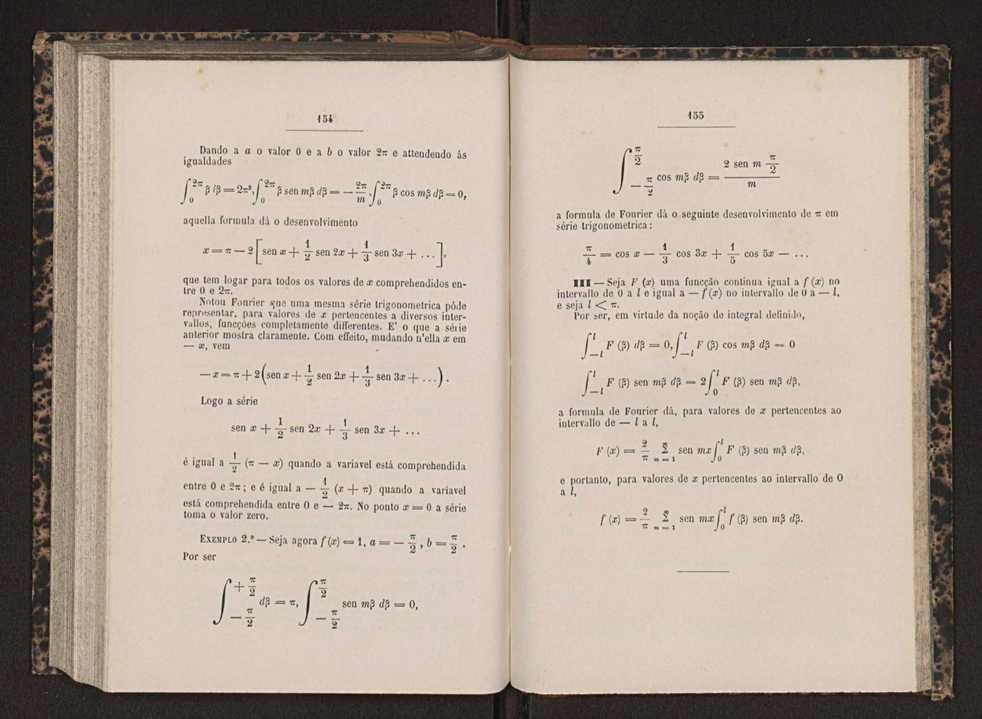 154
Dando a a o valor 0 e a b o valor 2π e attendendo ás
igualdades
∫₀^{2π} β dβ = 2π², ∫₀^{2π} β sen mβ dβ = — 2π/m, ∫₀^{2π} β cos mβ dβ = 0,
aquella formula dá o desenvolvimento
x = π — 2 [ sen x + 1/2 sen 2x + 1/3 sen 3x + ... ],
que tem logar para todos os valores de x comprehendidos en-
tre 0 e 2π.
Notou Fourier que uma mesma série trigonometrica póde
representar, para valores de x pertencentes a diversos inter-
vallos, funcções completamente differentes. E' o que a série
anterior mostra claramente. Com effeito, mudando n'ella x em
— x, vem
— x = π + 2 ( sen x + 1/2 sen 2x + 1/3 sen 3x + ... ) .
Logo a série
sen x + 1/2 sen 2x + 1/3 sen 3x + ...
é igual a 1/2 (π — x) quando a variavel está comprehendida
entre 0 e 2π; e é igual a — 1/2 (x + π) quando a variavel
está comprehendida entre 0 e — 2π. No ponto x = 0 a série
toma o valor zero.
EXEMPLO 2.º — Seja agora f (x) = 1, a = — π/2 , b = π/2 .
Por ser
∫_{— π/2}^{+ π/2} dβ = π, ∫_{— π/2}^{π/2} sen mβ dβ = 0,
155
∫_{— π/2}^{π/2} cos mβ dβ = 2 sen m π/2 / m
a formula de Fourier dá o seguinte desenvolvimento de π em
série trigonometrica :
π/4 = cos x — 1/3 cos 3x + 1/5 cos 5x — ...
III — Seja F (x) uma funcção continua igual a f (x) no
intervallo de 0 a l e igual a — f (x) no intervallo de 0 a — l,
e seja l < π.
Por ser, em virtude da noção de integral definido,
∫_{—l}^{l} F (β) dβ = 0, ∫_{—l}^{l} F (β) cos mβ dβ = 0
∫_{—l}^{l} F (β) sen mβ dβ = 2 ∫₀^{l} F (β) sen mβ dβ,
a formula de Fourier dá, para valores de x pertencentes ao
intervallo de — l a l,
F (x) = 2/π Σ_{m = 1}^{∞} sen mx ∫₀^{l} F (β) sen mβ dβ,
e portanto, para valores de x pertencentes ao intervallo de 0
a l,
f (x) = 2/π Σ_{m = 1}^{∞} sen mx ∫₀^{l} f (β) sen mβ dβ.